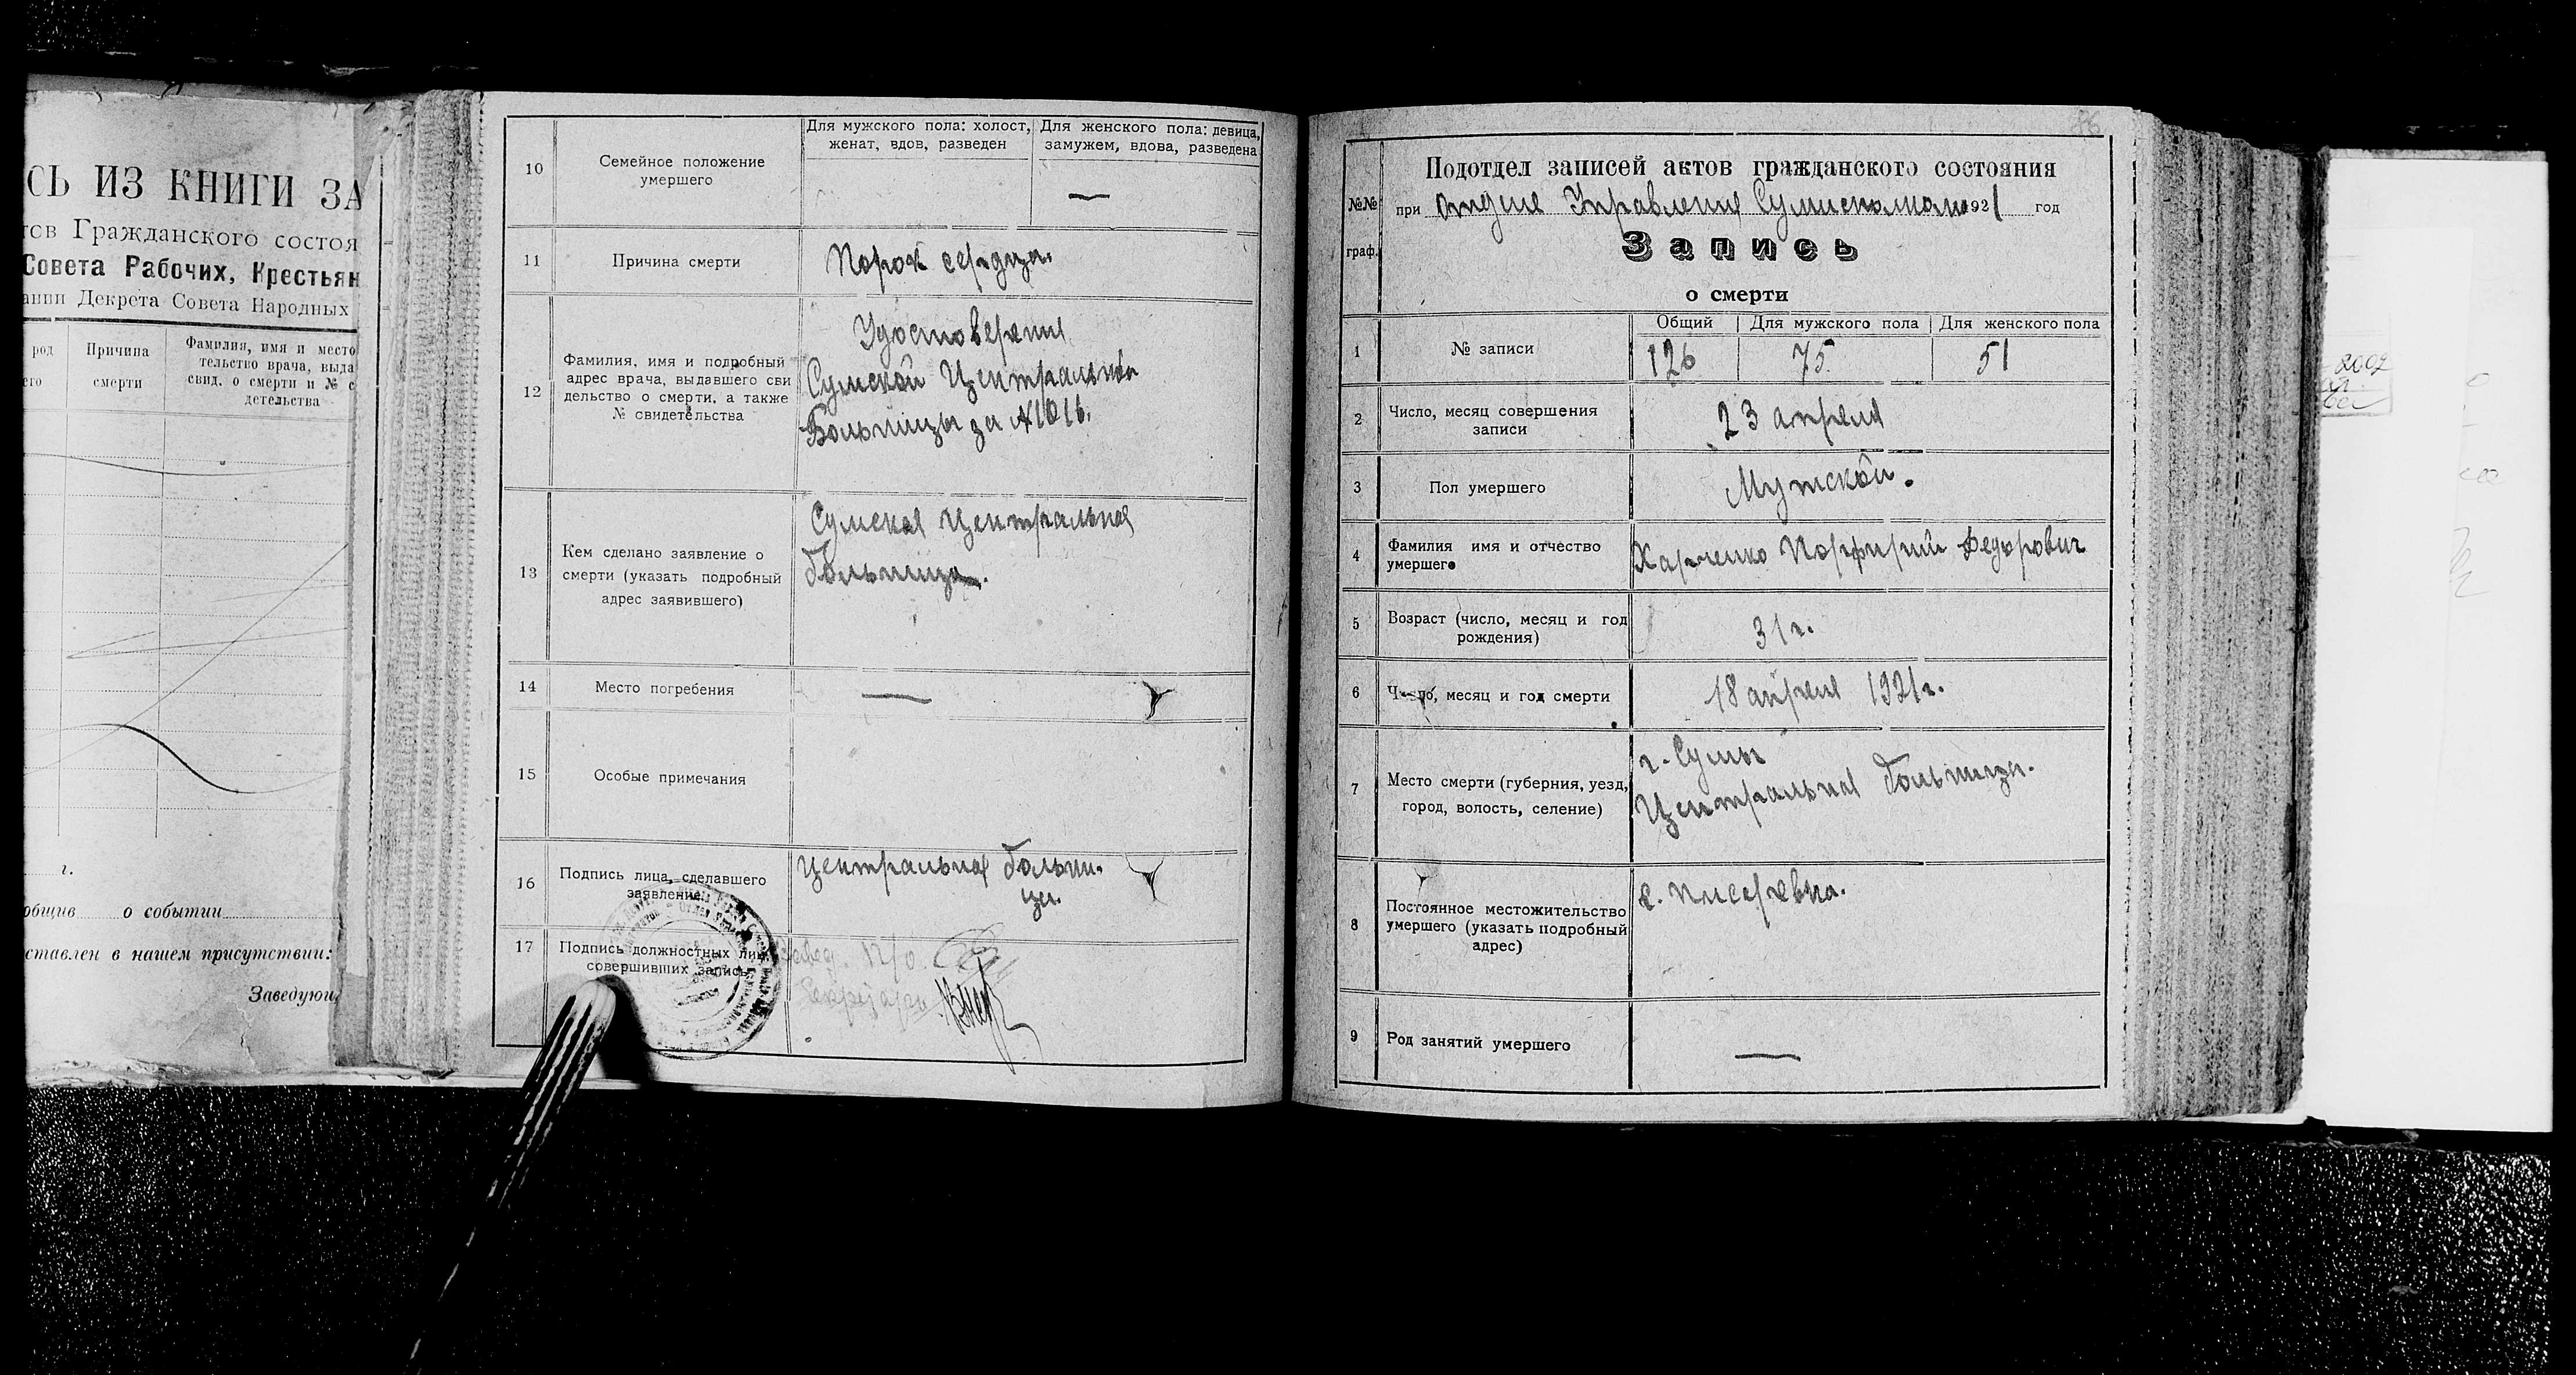 СЬ ИЗ КНИГИ ЗА
тов Гражданского состоя
Совета Рабочих, Крестьян
ании Декрета Совета Народных
род
его
Причина
смерти
Фамилия, имя и место
тельство врача, выда
свид. о смерти и № с
детельства
г.
общив о событии
ставлен в нашем присутствии:
Заведующ
10
Семейное положение
умершего
Для мужского пола: холост,
женат, вдов, разведен
Для женского пола: девица,
замужем, вдова, разведена
—
11
Причина смерти
Порок сердца.
12
Фамилия, имя и подробный
адрес врача, выдавшего сви
дельство о смерти, а также
№ свидетельства
Удостоверения
Сумской Центральной
Больницы за №1016.
13
Кем сделано заявление о
смерти (указать подробный
адрес заявившего)
Сумская Центральная
больница.
14
Место погребения
—
15
Особые примечания
16
Подпись лица, сделавшего
заявление
Центральная больни-
ца.
17
Подпись должностных лиц,
совершивших запись
Завед. П/о
Секретарь
86
№№
граф.
Подотдел записей актов гражданского состояния
при Отделе Управления Сумисполкома 1921 год
Запись
о смерти
1
№ записи
Общий
Для мужского пола
Для женского пола
126
75
51
2
Число, месяц совершения
записи
23 апреля
3
Пол умершего
Мужской.
4
Фамилия имя и отчество
умершего
Харченко Порфирий Федорович
5
Возраст (число, месяц и год
рождения)
31 г.
6
Число, месяц и год смерти
18 апреля 1921 г.
7
Место смерти (губерния, уезд,
город, волость, селение)
г. Сумы
Центральная больница.
8
Постоянное местожительство
умершего (указать подробный
адрес)
с. Писаревка.
9
Род занятий умершего
—
2002